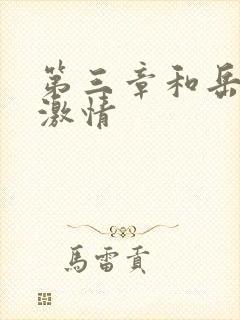 第三章和岳
激情
馬雷貢